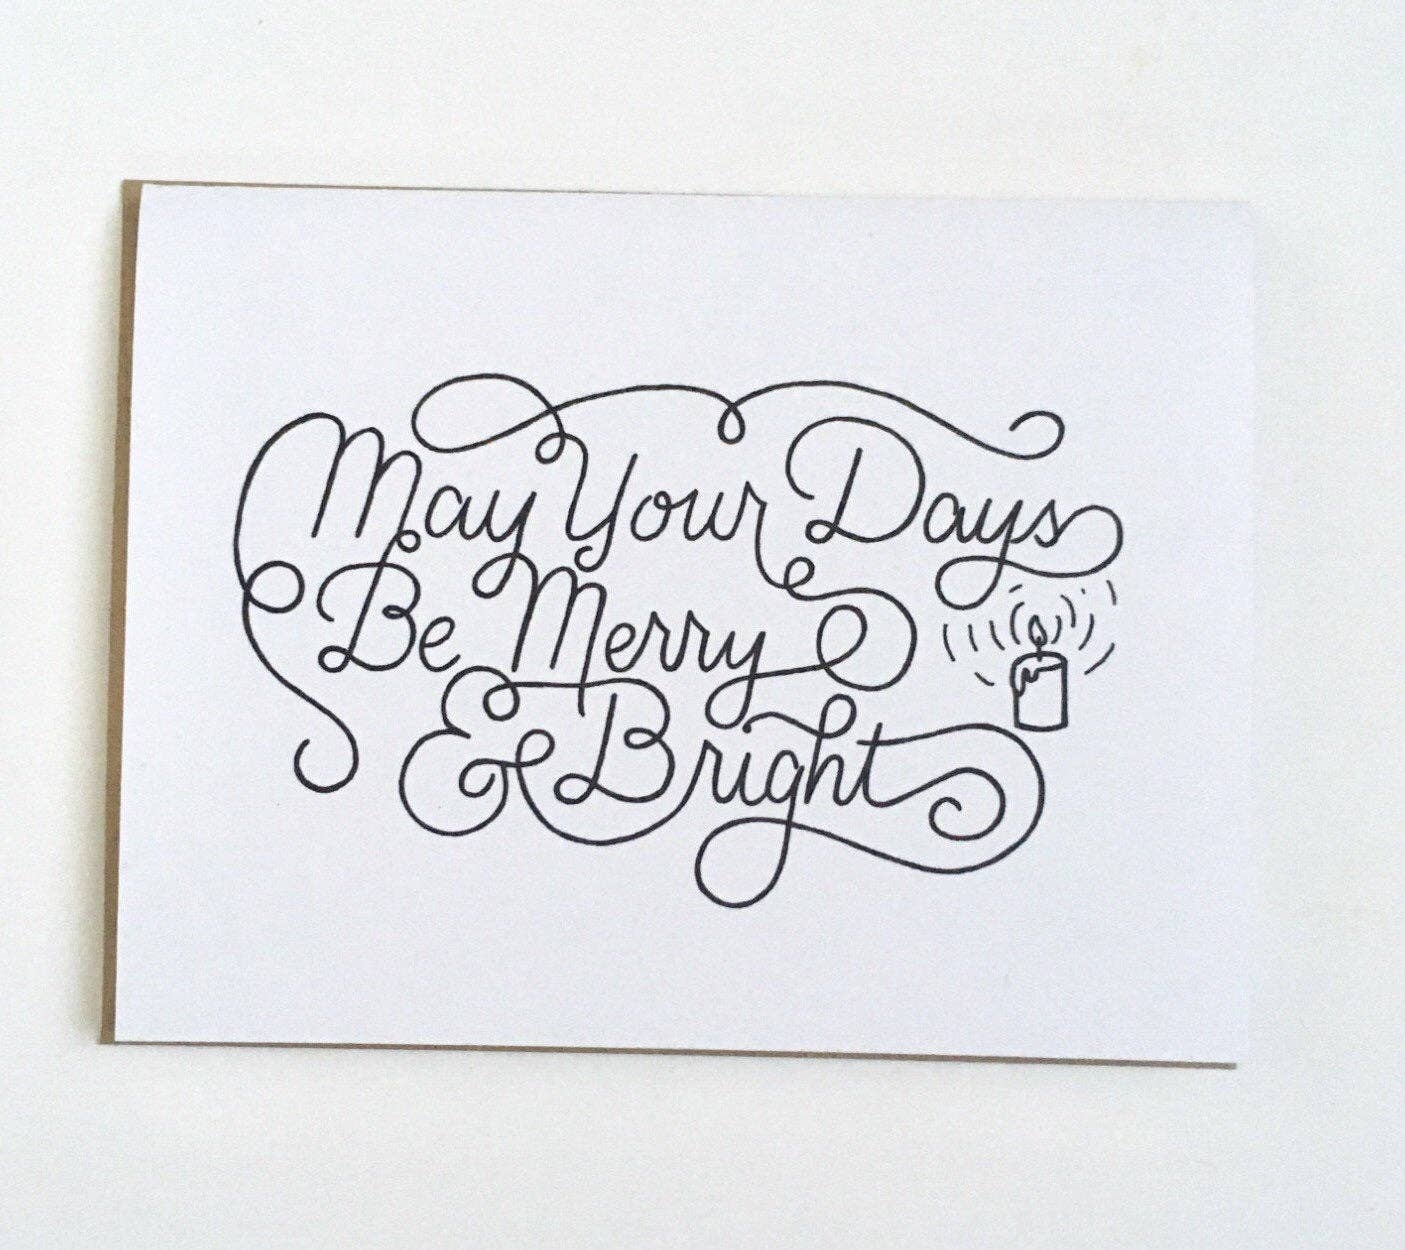 May Your Days
Be Merry
& Bright